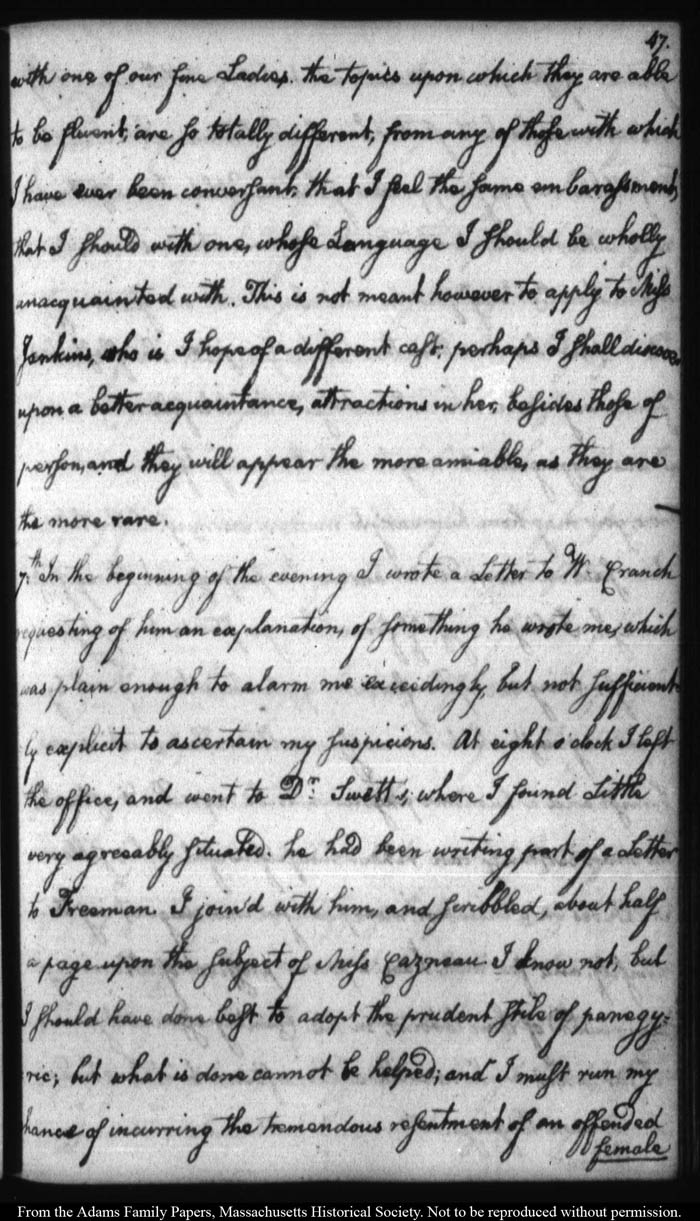 47.
with one of our fine Ladies. the topics upon which they are able
to be fluent, are so totally different, from any of those with which
I have ever been conversant, that I feel the same embarassment,
that I should with one, whose Language I should be wholly
unacquainted with. This is not meant however to apply to Miss
Jenkins, who is I hope of a different cast. perhaps I shall discover
upon a better acquaintance, attractions in her, besides those of
person, and they will appear the more amiable, as they are
the more rare.
7.th In the beginning of the evening I wrote a Letter to W. Cranch
requesting of him an explanation, of something he wrote me, which
was plain enough to alarm me exceedingly, but not sufficient-
ly explicit to ascertain my suspicions. At eight o'clock I left
the office, and went to Dr. Swett's, where I found Little
very agreeably situated. he had been writing part of a Letter
to Freeman I join'd with him, and scribbled, about half
a page upon the subject of Miss Cazneau I know not, but
I should have done best to adopt the prudent stile of panegy-
ric; but what is done cannot be helped; and I must run my
chance of incurring the tremendous resentment of an offended
female
From the Adams Family Papers, Massachusetts Historical Society. Not to be reproduced without permission.